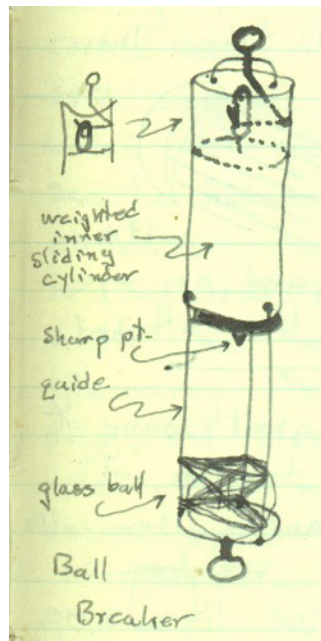 weighted
inner
sliding
cylinder
sharp pt.
guide
glass ball
Ball
Breaker